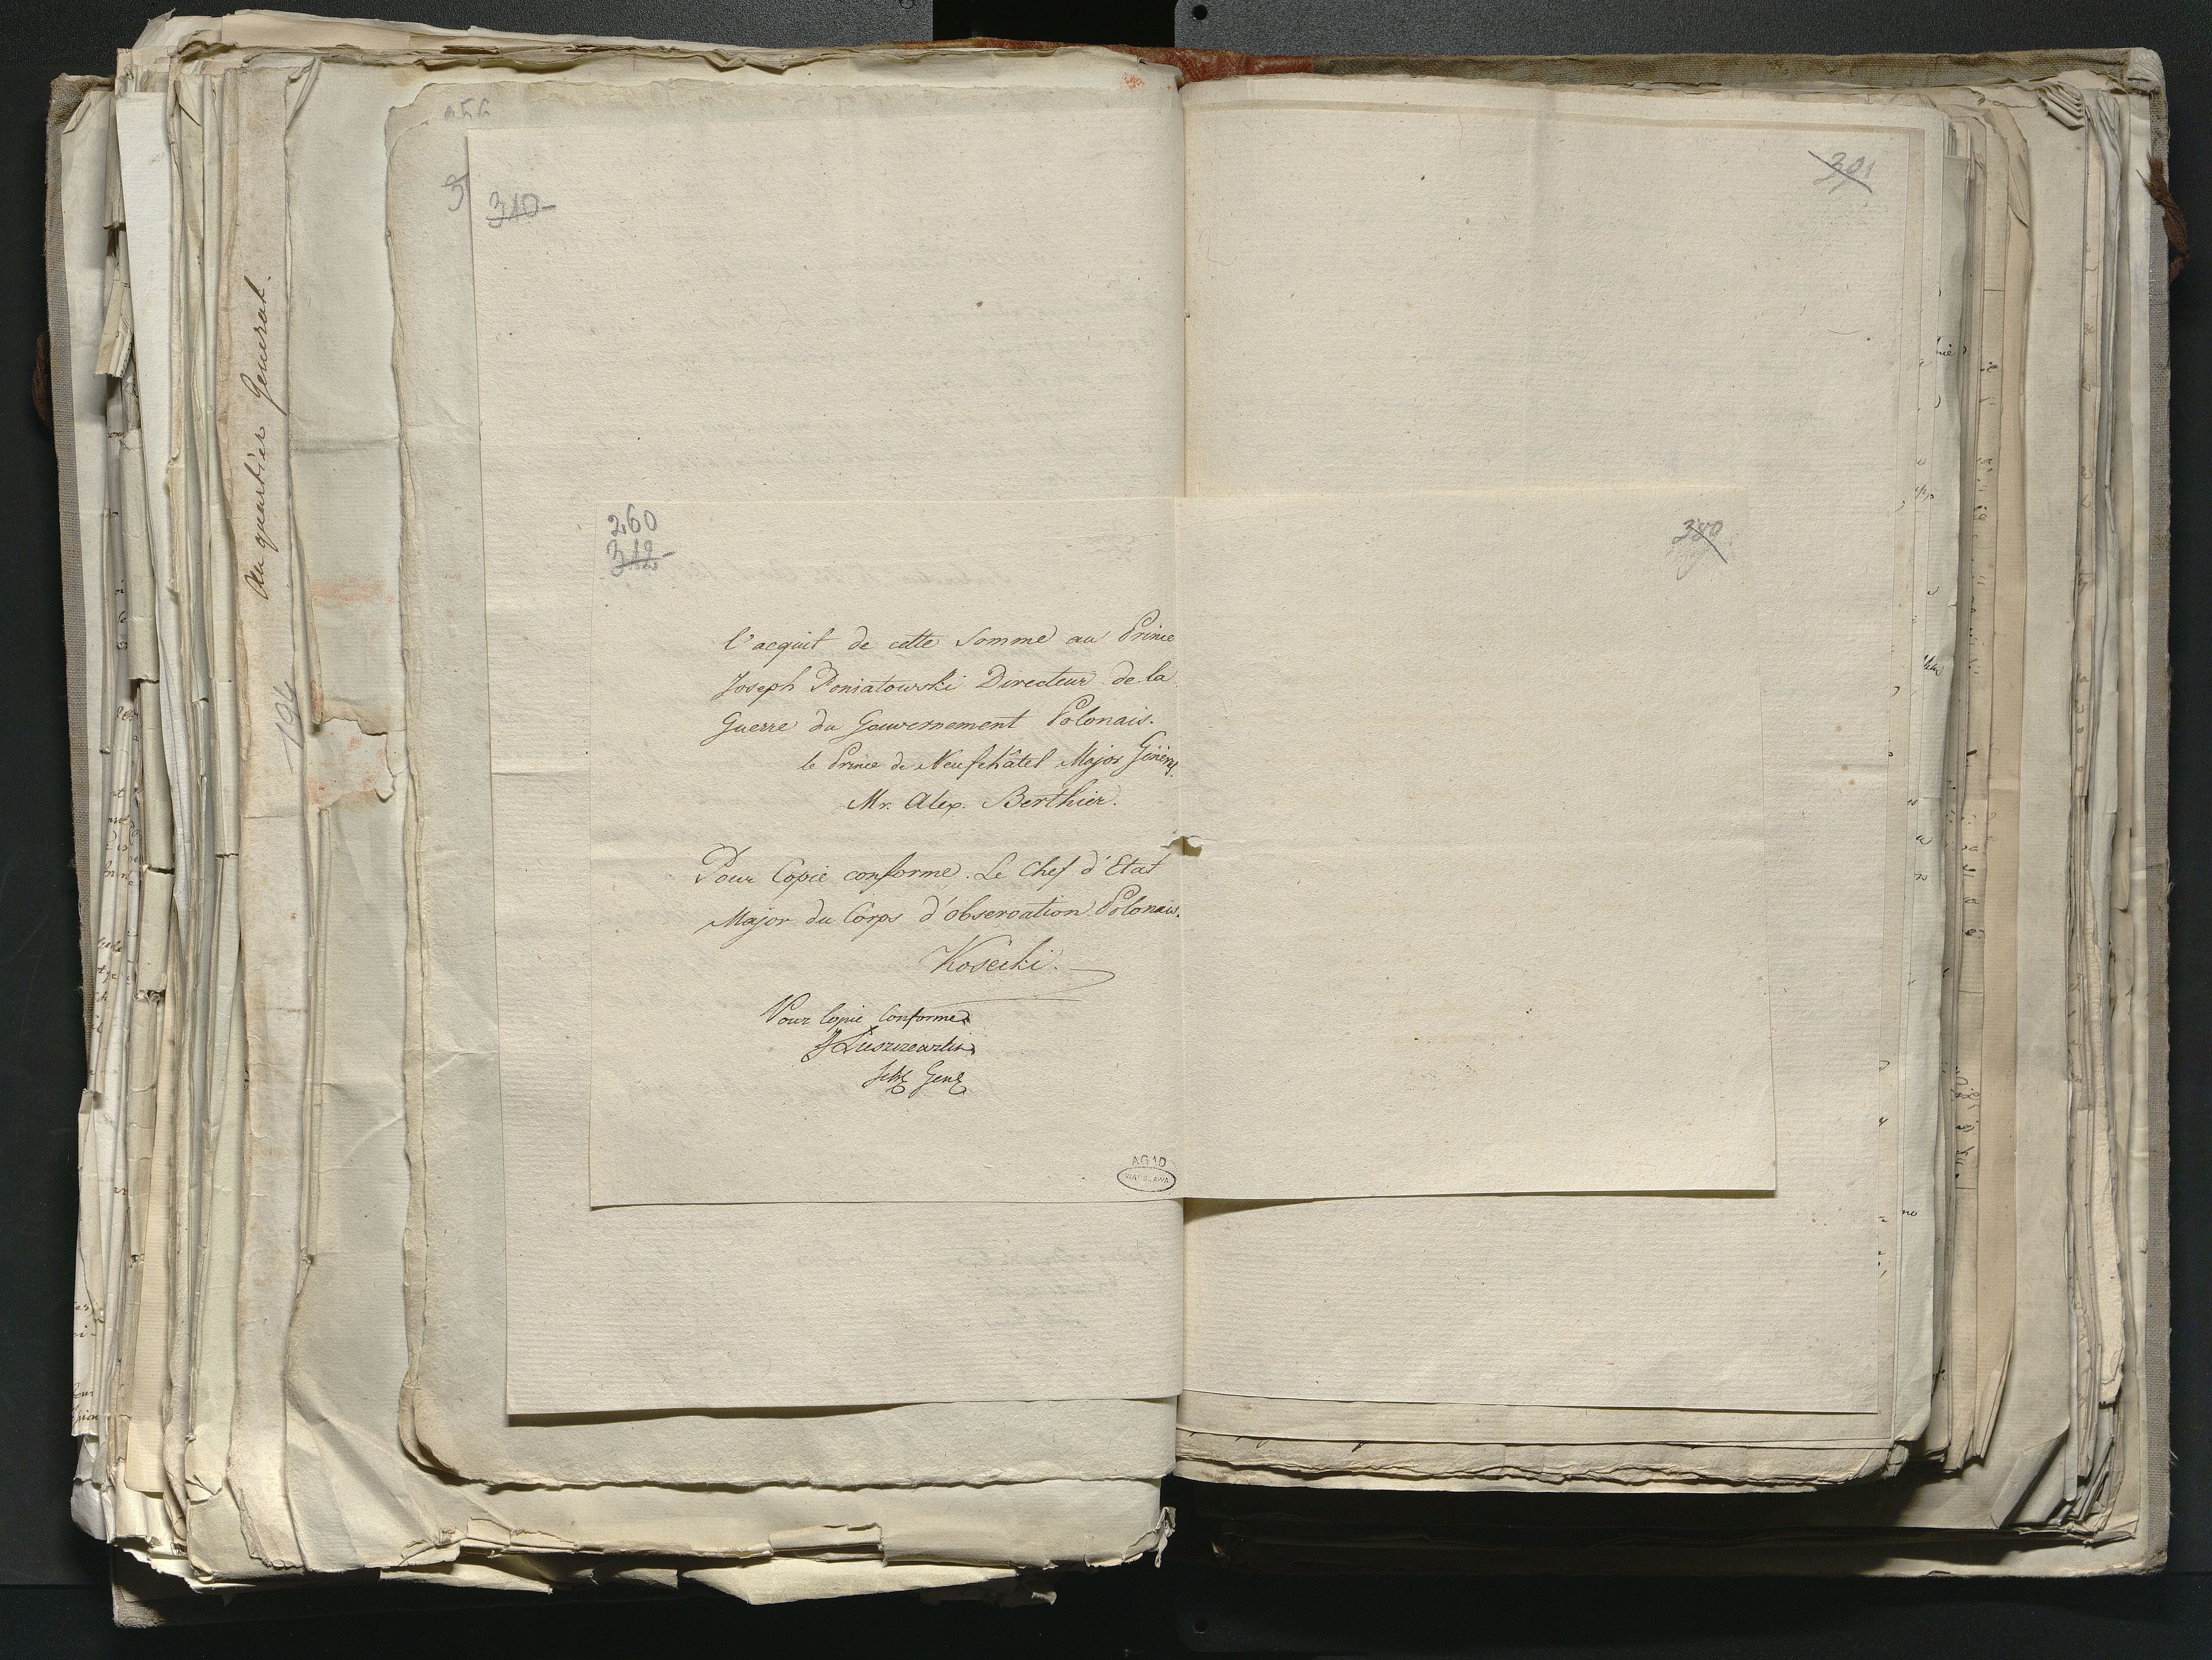 310
260
312
l'acquit de cette Somme au Prince
Joseph Poniatowski Directeur de la
Guerre du Gouvernement Polonais.
le Prince de Neufchâtel Major Génér.
Mr. Alex. Berthier.
Pour Copie conforme. Le Chef d'Etat
Major du Corps d'observation Polonais.
Kosecki.
Pour Copie Conforme
J Luszczewski
Sekr Genl
AGAD
WARSZAWA
Au quartier General.
194
391
380